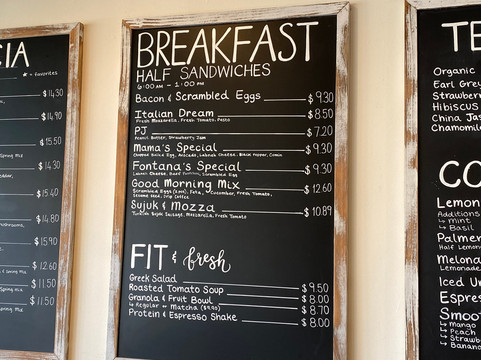 CIA
= Favorites
$14.30
$14.90
$15.50
$14.30
$15.40
$14.80
$15.90
$12.60
$11.50
$11.50
BREAKFAST
HALF SANDWICHES
6:00 AM - 1:00 PM
Bacon & Scrambled Eggs $9.30
Italian Dream $8.50
Fresh Mozzarella, Fresh Tomato, Pesto
PJ $7.20
Peanut Butter, Strawberry Jam
Mama's Special $9.30
Boiled Egg, Avocado, Labneh Cheese, Black Pepper, Cumin
Fontana's Special $9.30
Labneh Cheese, Beef Scrambled Egg
Good Morning Mix $12.60
Scrambled Eggs Feta, Cucumber, Fresh Tomato,
Sesame Seed, Drip Coffee
Sujuk & Mozza $10.89
Turkish Sujuk Sausage, Mozzarella, Fresh Tomato
FIT & fresh
Greek Salad $9.50
Roasted Tomato Soup $8.00
Granola & Fruit Bowl $8.70
↳ Regular or Matcha
Protein & Espresso Shake $8.00
TE
Organic
Earl Grey
Strawberr
Hibiscus
China Jas
Chamomile
CO
Lemona
Additions
↳ Mint
↳ Basil
Palmer
Half Lemon
Melona
Lemonade
Iced
Espres
Smoo
↳ Mango
↳ Peach
↳ Strawb
↳ Banana